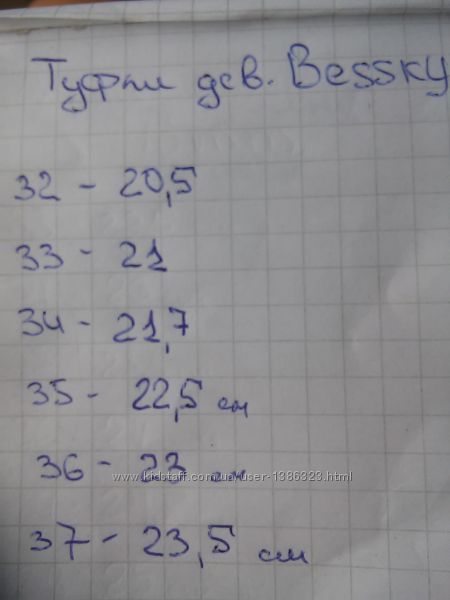 Туфли дев. Bessky
32 - 20,5
33 - 21
34 - 21,7
35 - 22,5 см
36 - 23 см
www.kidstaff.com.ua/user-1386323.html
37 - 23,5 см